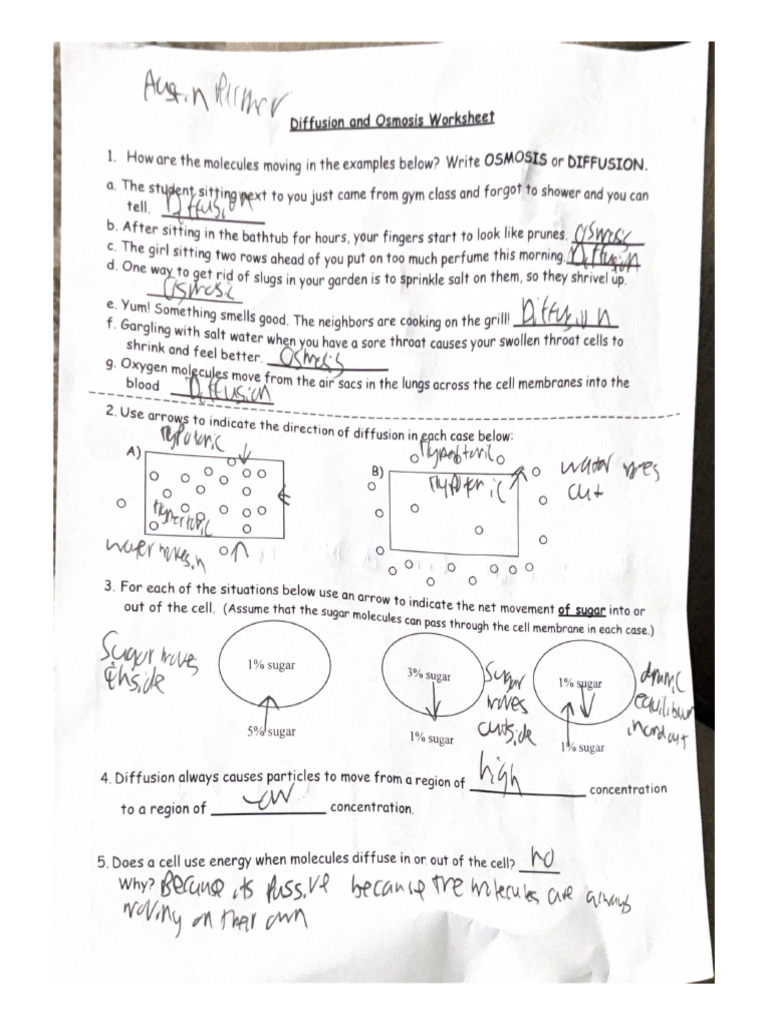 Austin
Diffusion and Osmosis Worksheet
1. How are the molecules moving in the examples below? Write OSMOSIS or DIFFUSION.
a. The student sitting next to you just came from gym class and forgot to shower and you can
tell. Diffusin
b. After sitting in the bathtub for hours, your fingers start to look like prunes. Osmosis
c. The girl sitting two rows ahead of you put on too much perfume this morning. Diffusion
d. One way to get rid of slugs in your garden is to sprinkle salt on them, so they shrivel up.
Osmosis
e. Yum! Something smells good. The neighbors are cooking on the grill! Diffusion
f. Gargling with salt water when you have a sore throat causes your swollen throat cells to
shrink and feel better. Osmosis
g. Oxygen molecules move from the air sacs in the lungs across the cell membranes into the
blood Diffusion
2. Use arrows to indicate the direction of diffusion in each case below:
A)
Hypertonic
water moves in
B)
water moves
out
3. For each of the situations below use an arrow to indicate the net movement of sugar into or
out of the cell. (Assume that the sugar molecules can pass through the cell membrane in each case.)
Sugar moves
inside
1% sugar
5% sugar
3% sugar
1% sugar
Sugar
moves
outside
1% sugar
1% sugar
equilibrium
in and out
4. Diffusion always causes particles to move from a region of high concentration
to a region of low concentration.
5. Does a cell use energy when molecules diffuse in or out of the cell? no
Why? Because its Passive because the molecules are always
moving on their own